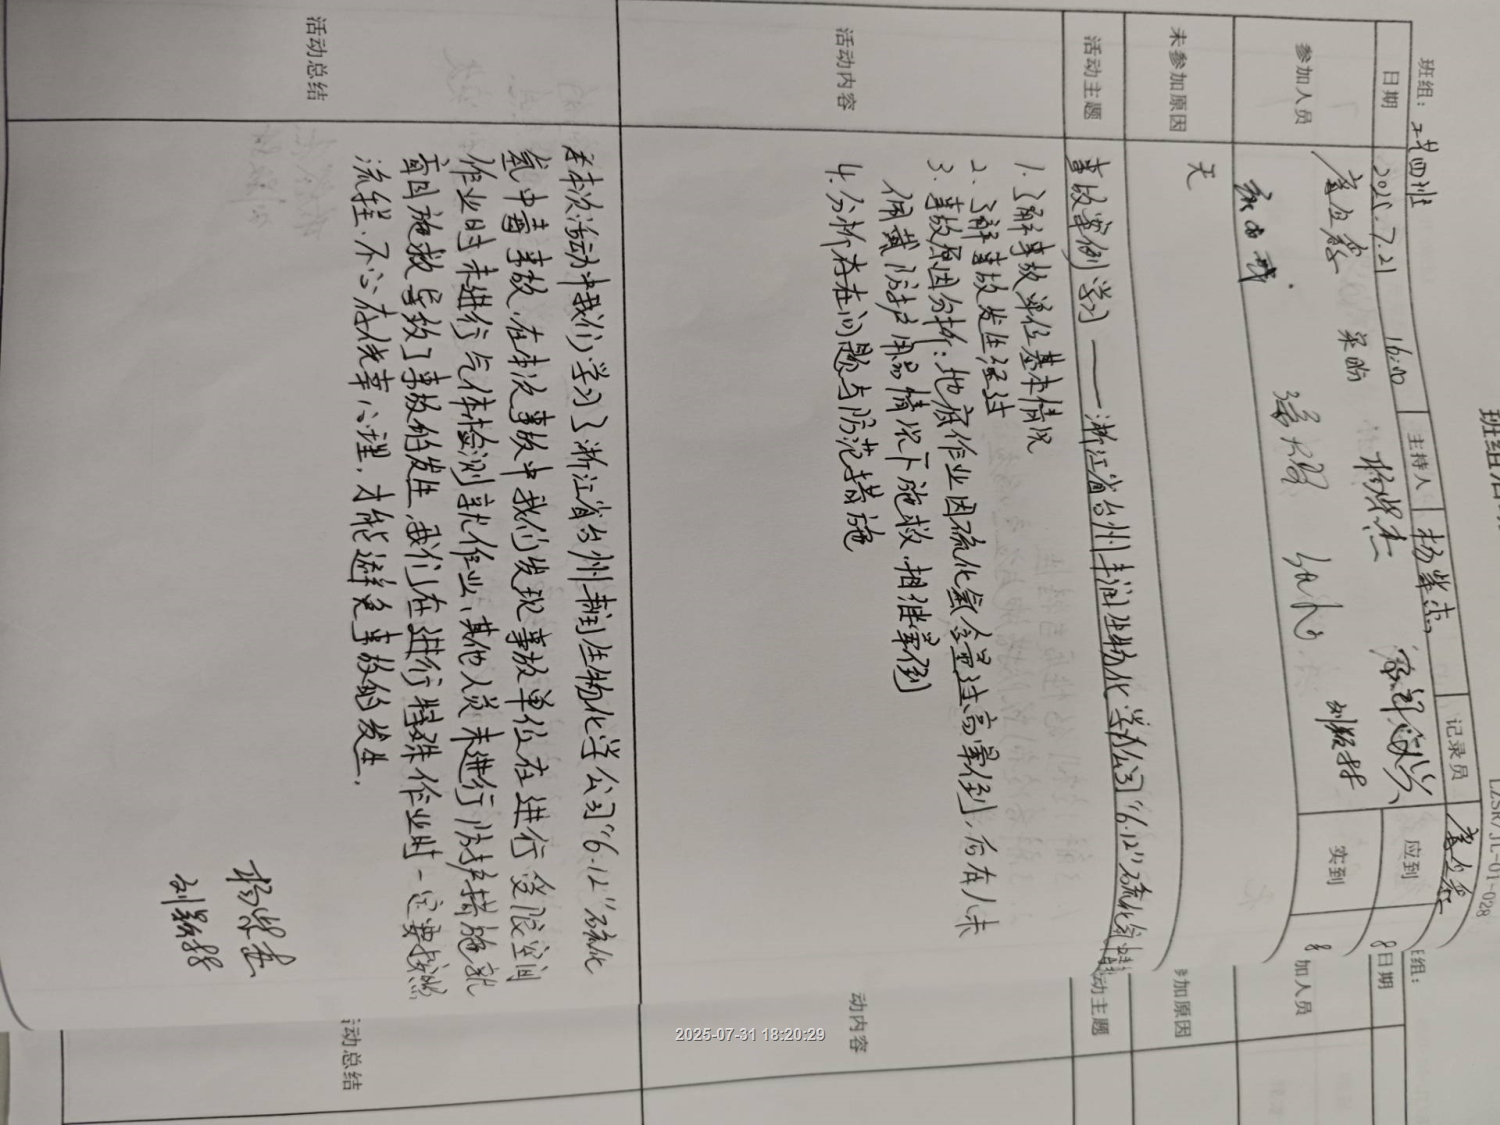 班组活
LZSR/JL-01-028
班组： 四班
日期 2025.7.21 16:00 主持人 杨紫杰 记录员
参加人员 杨紫杰 应到 8
实到 8
未参加原因 无
活动主题 事故案例学习——浙江省台州丰润生物化学公司“6.12”硫化氢中毒
活动内容
1. 了解事故单位基本情况
2. 了解事故发生经过
3. 事故原因分析：地底作业因硫化氢含量过高晕倒，后有人未
佩戴防护用品情况下施救，相继晕倒
4. 分析存在问题与防范措施
活动总结
本次活动中我们学习了浙江省台州丰润生物化学公司“6.12”硫化
氢中毒事故，在本次事故中我们发现事故单位在进行受限空间
作业时未进行气体检测就作业，其他人员未进行防护措施就
盲目施救导致了事故的发生，我们在进行特殊作业时一定要按照
流程，不心存侥幸心理，才能避免事故的发生.
杨紫杰
班组：
日期
加人员
参加原因
动主题
动内容
活动总结
2025-07-31 18:20:29